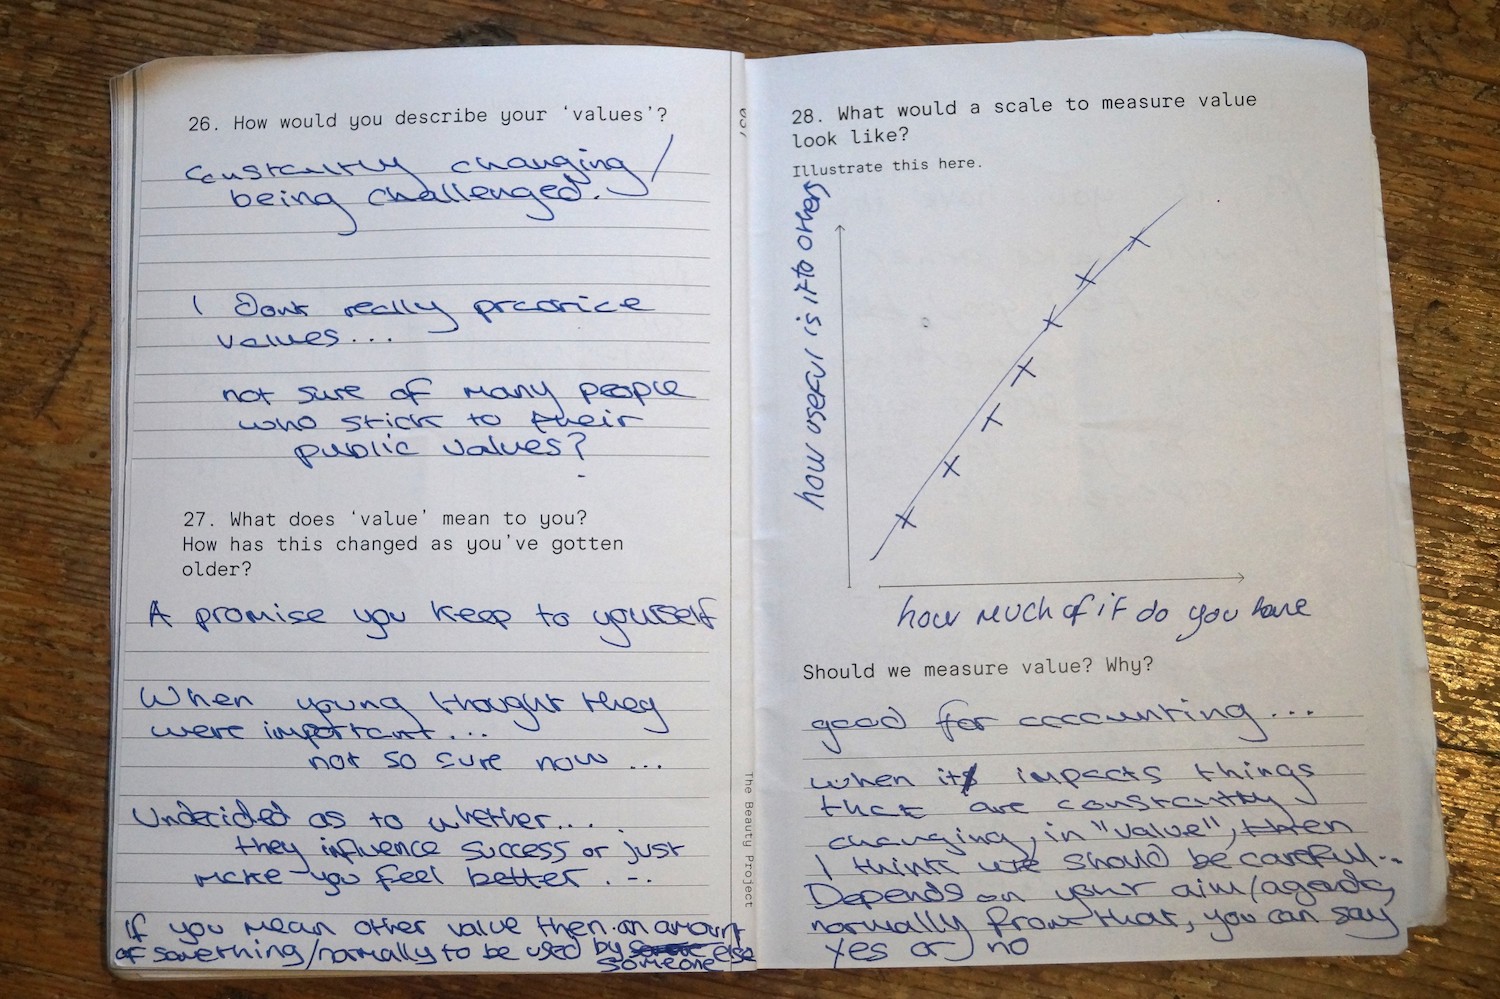 26. How would you describe your 'values'?
Constantly changing/
being challenged.
I Dont really practice
values...
not sure of many people
who stick to their
public values?
27. What does 'value' mean to you?
How has this changed as you've gotten
older?
A promise you keep to yourself
When young thought they
were important...
not so sure now...
Undecided as to whether...
they influence success or just
make you feel better...
If you mean other value then an amount
of something/normally to be used by else
someone
The Beauty Project
28. What would a scale to measure value
look like?
Illustrate this here.
how useful is it to others
how much of it do you have
Should we measure value? Why?
good for accounting...
when it impacts things
that are constantly
changing, in "value", then
I think we should be careful..
Depends on your aim/agenda,
normally from that, you can say
yes or no